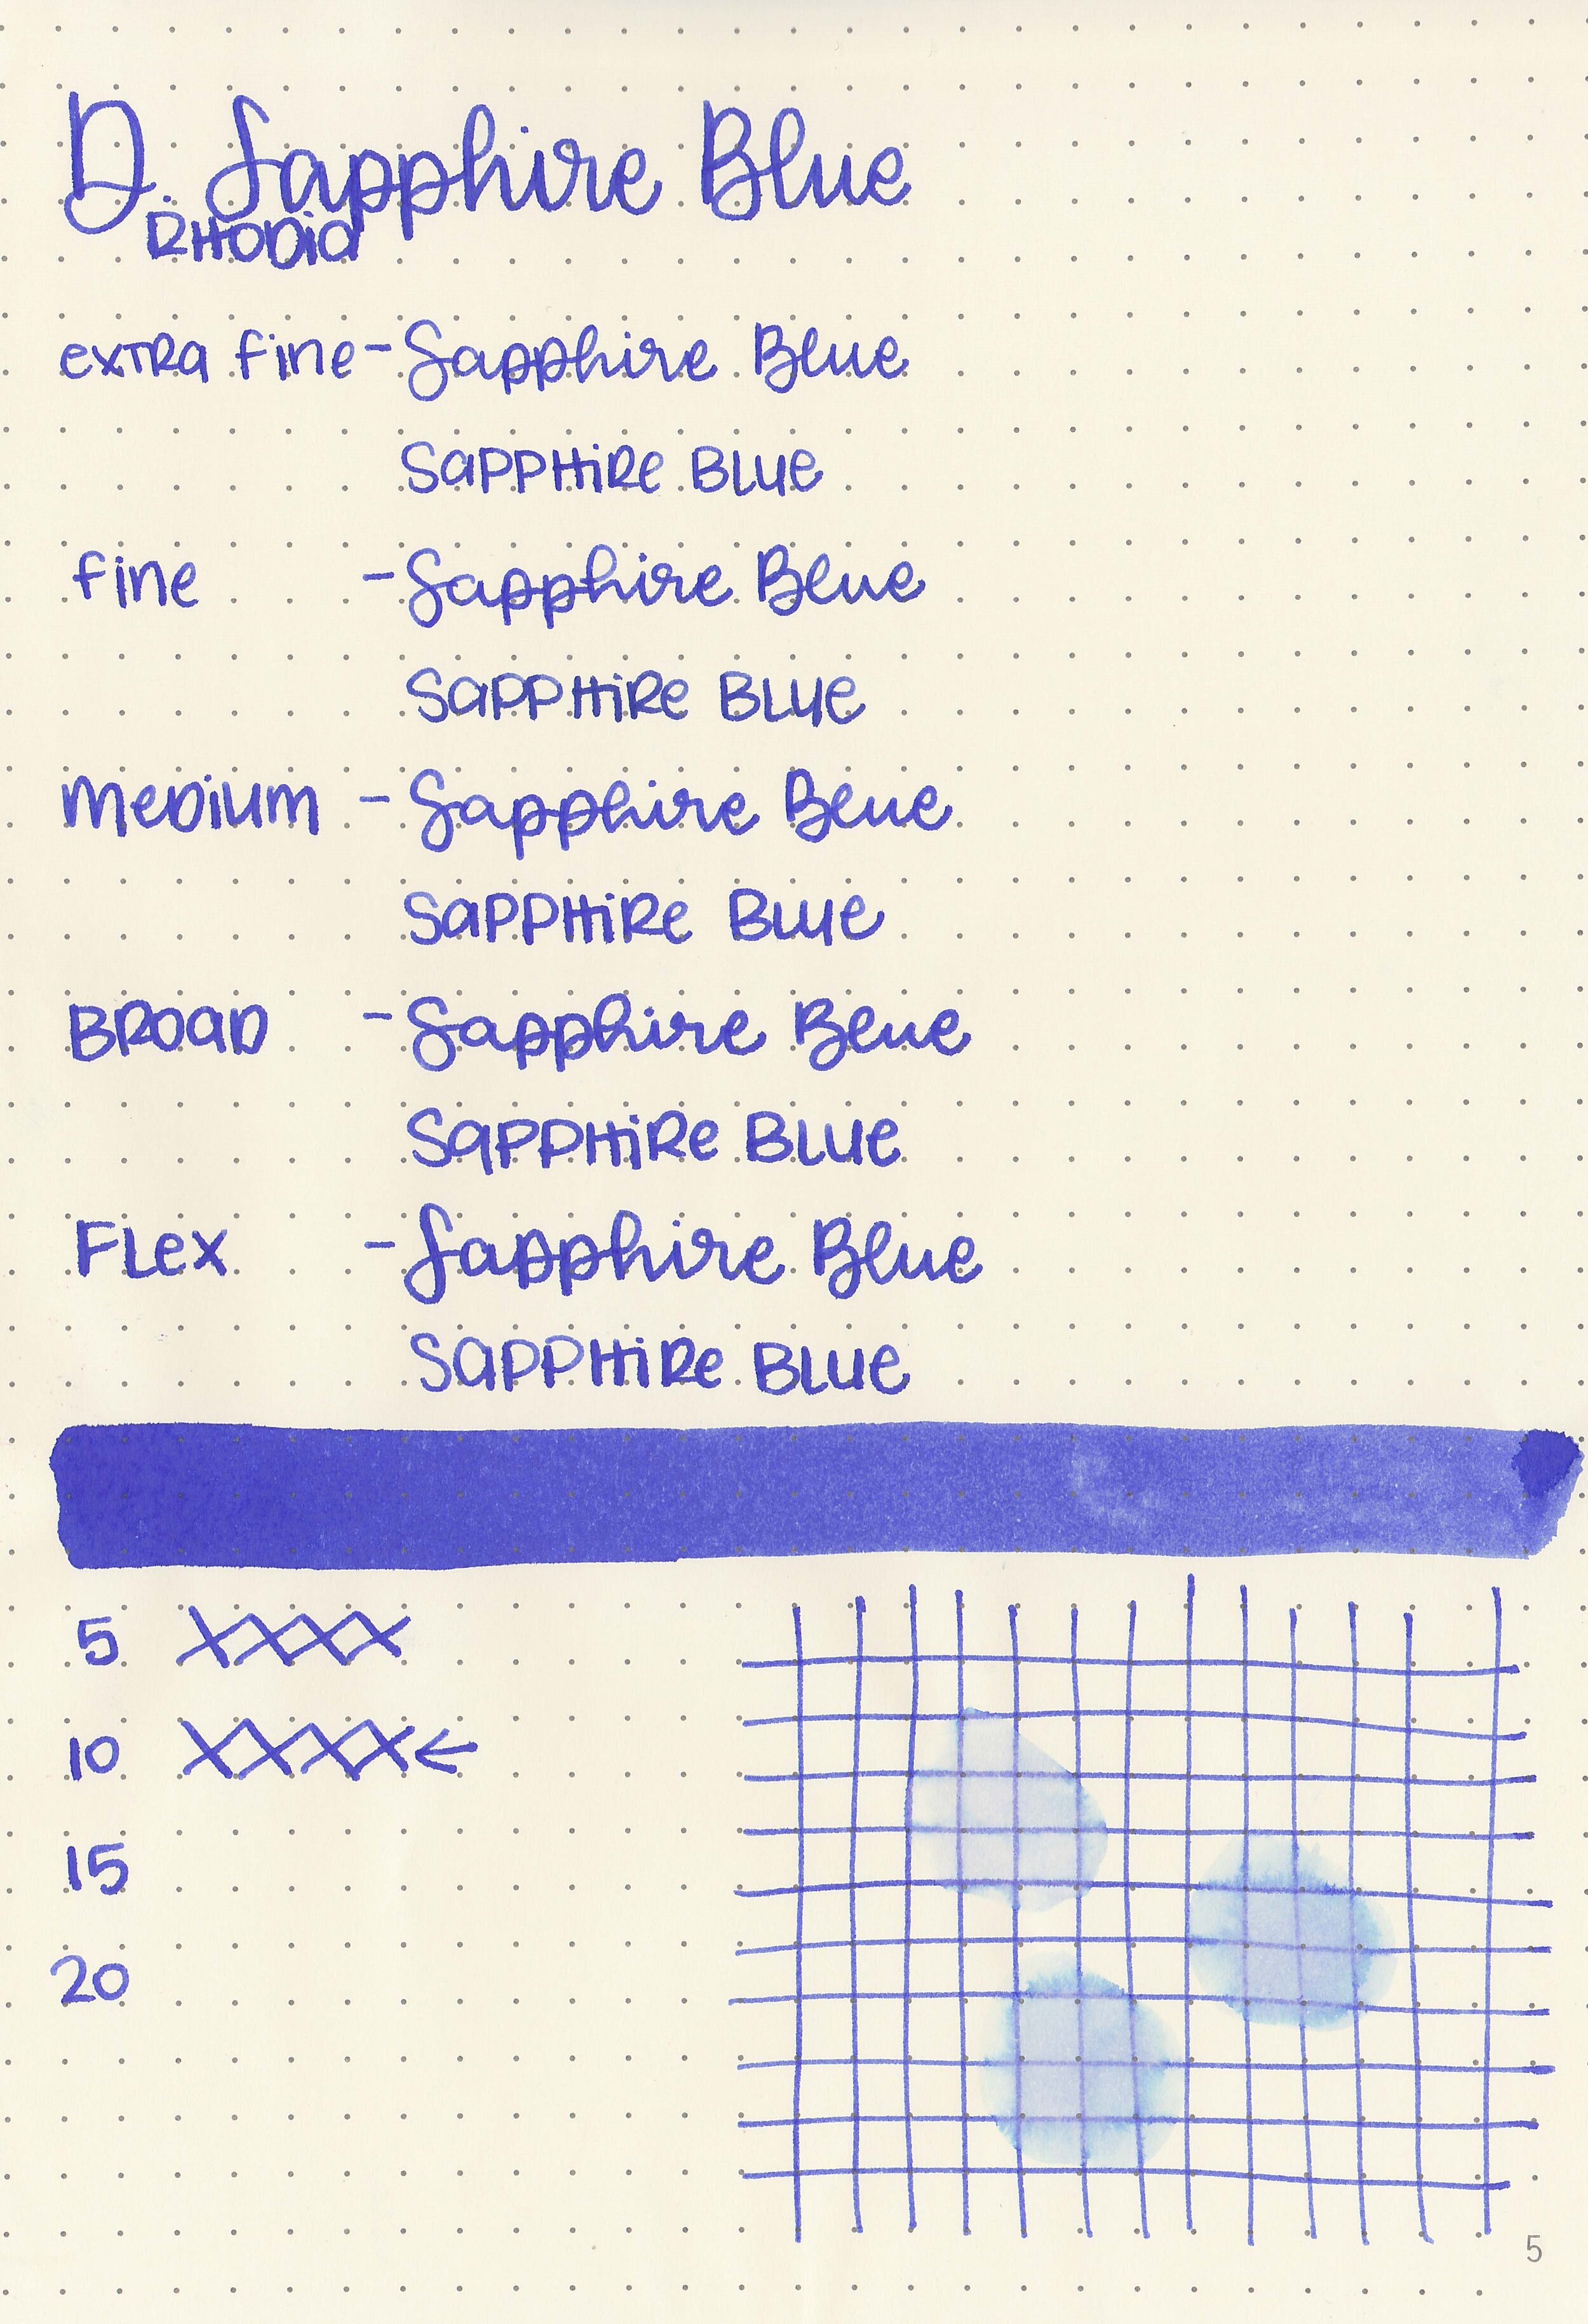 D. Sapphire Blue
RHODia
exTRa fine - Sapphire Blue
SaPPHiRe BLue
fine - Sapphire Blue
SaPPHiRe BLue
MeDium - Sapphire Blue
SaPPHiRe BLue
BROaD - Sapphire Blue
SaPPHiRe BLue
FLex - Sapphire Blue
SaPPHiRe BLue
5 XXXX
10 XXXX ←
15
20
5